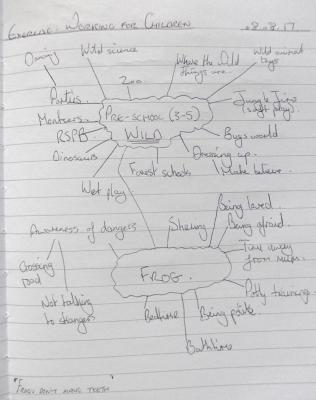 Exercise: Working for Children
8.8.17
Wild science
Where the Wild
things are.
Wild animal
toys
Zoo
Parties.
Jungle Jims
(soft play).
PRE-SCHOOL (3-5)
WILD
Monsters
RSPB
Bugs world
Dinosaurs
Dressing up.
Forest schools
Make believe
Wet play
Being loved.
Awareness of dangers
Sharing
Being afraid.
Time away
from mum.
Crossing
road
FROG.
Potty training
Not talking
to strangers
Bedtime
Being polite
Bathtime
"Frogs don't have teeth"